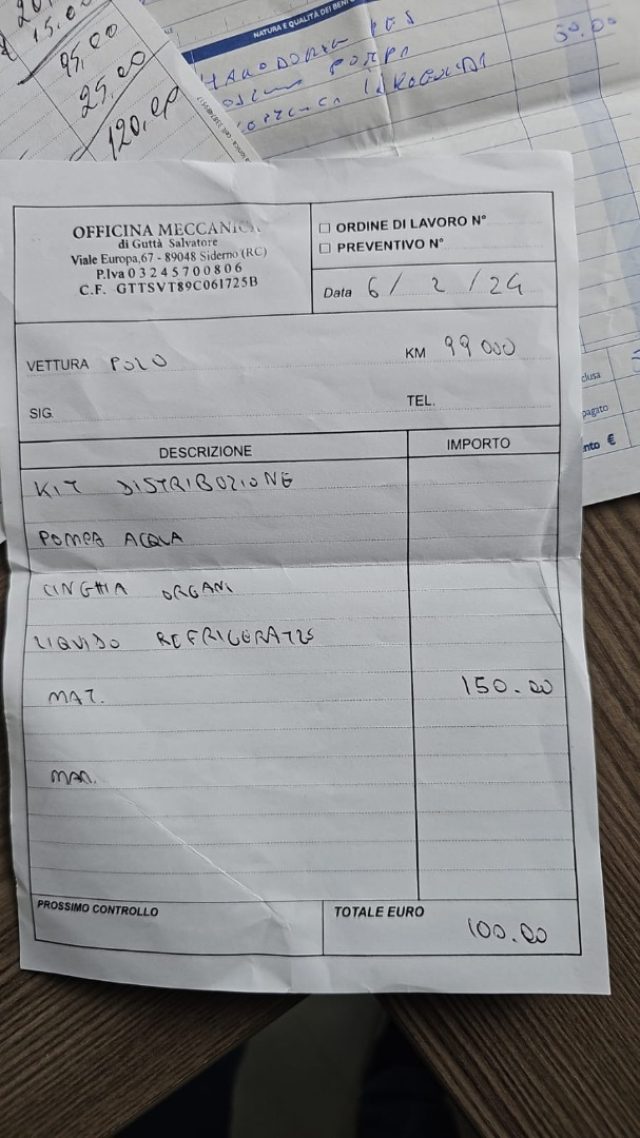 15.00
95.00
25.00
120.00
NATURA E QUALITÀ DEI BENI
50.00
OFFICINA MECCANICA
di Guttà Salvatore
Viale Europa,67 - 89048 Siderno (RC)
P.Iva 03245700806
C.F. GTTSVT89C061725B
ORDINE DI LAVORO N°
PREVENTIVO N°
Data 6/2/24
VETTURA POLO
KM 99000
SIG.
TEL.
clusa
pagato
nto €
DESCRIZIONE
IMPORTO
KIT DISTRIBUZIONE
POMPA ACQUA
CINGHIA ORGANI
LIQUIDO
MAT. 150.00
MAN.
PROSSIMO CONTROLLO
TOTALE EURO 100.00